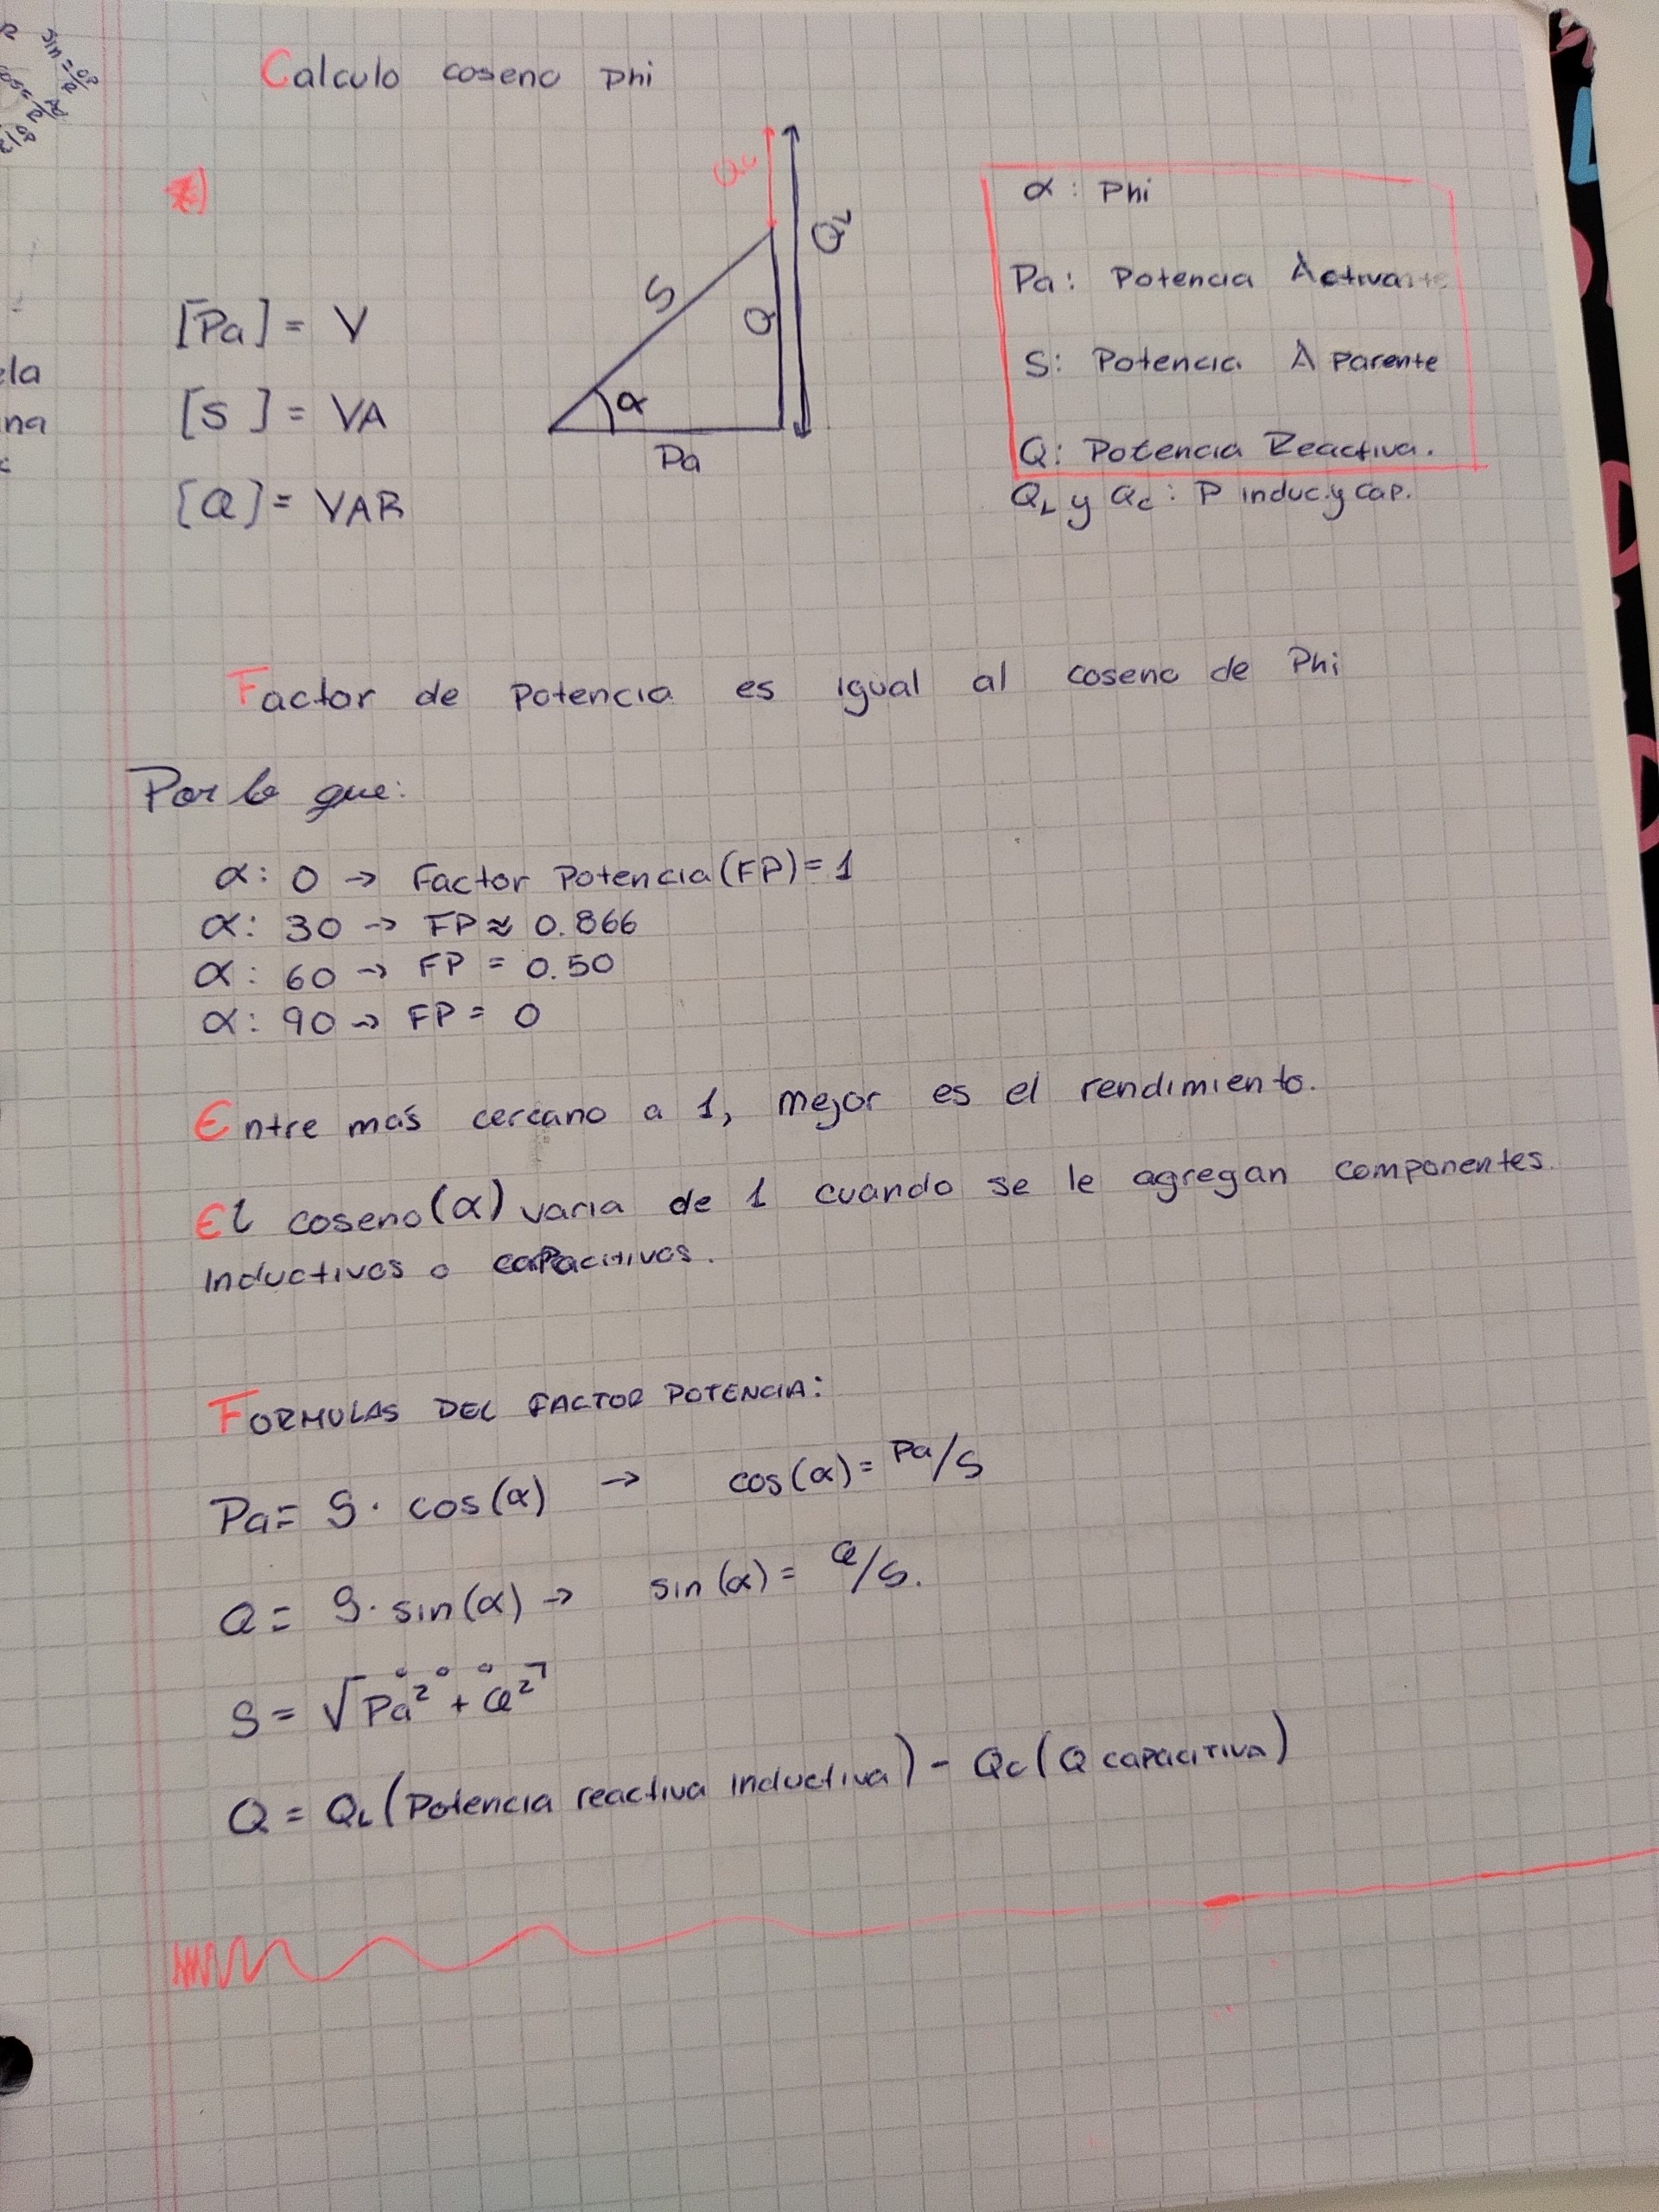 Calculo coseno phi
*)
[Pa] = V
[S] = VA
[Q] = VAR
Qc
QL
S
Q
α
Pa
α : Phi
Pa: Potencia Activa
S: Potencia Aparente
Q: Potencia Reactiva.
QL y Qc : P induc. y cap.
Factor de potencia es igual al coseno de Phi
Por lo que:
α: 0 → Factor Potencia (FP) = 1
α: 30 → FP ≈ 0.866
α: 60 → FP = 0.50
α: 90 → FP = 0
Entre más cercano a 1, mejor es el rendimiento.
El coseno (α) varia de 1 cuando se le agregan componentes
inductivos o capacitivos.
FORMULAS DEL FACTOR POTENCIA:
Pa = S · cos(α) → cos(α) = Pa/S
Q = S · sin(α) → sin(α) = Q/S.
S = √Pa² + Q²
Q = QL (Potencia reactiva inductiva) - Qc (Q capacitiva)
ela
na
sin =